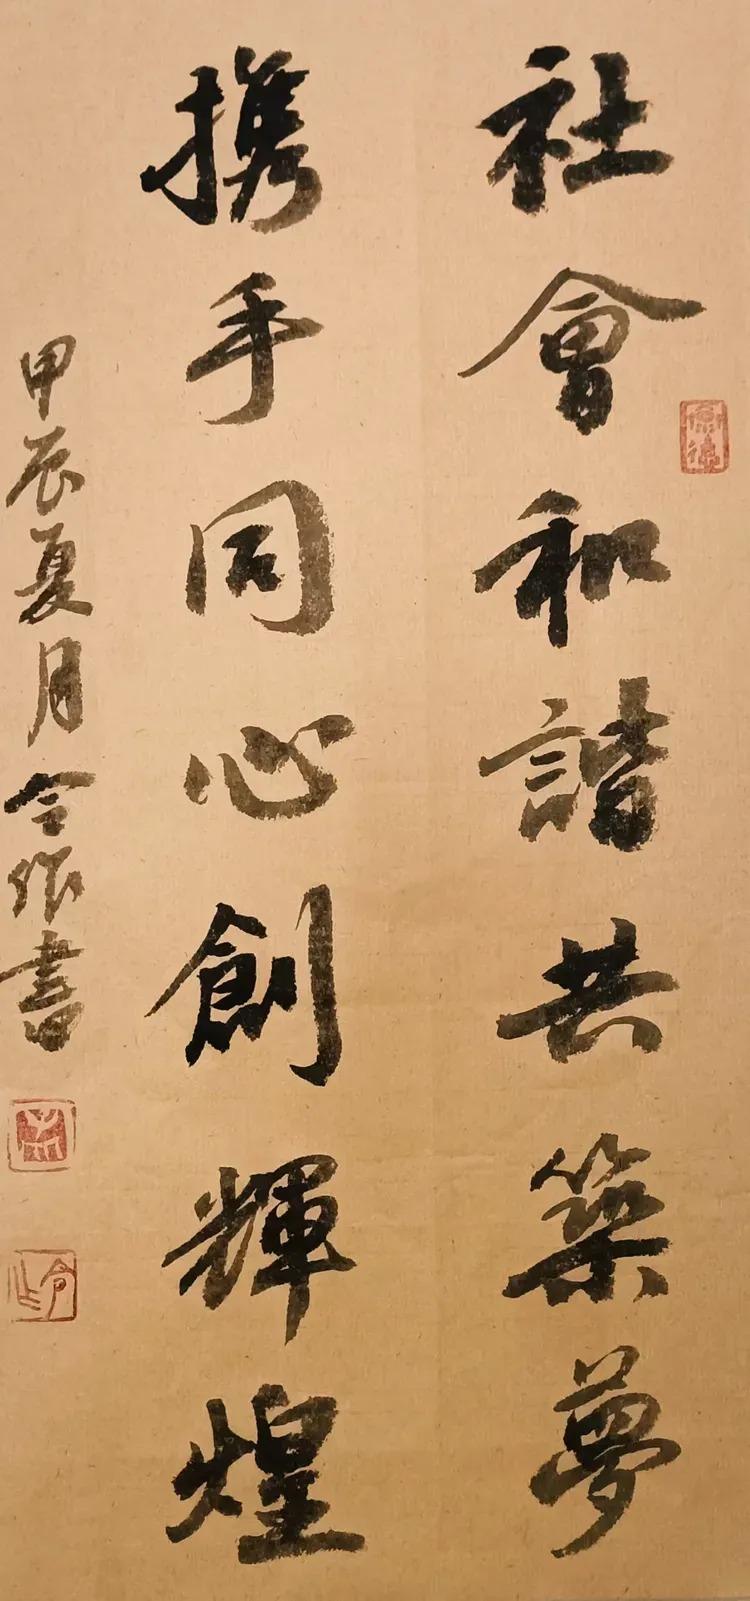 社會和諧共築夢
携手同心創輝煌
甲辰夏月令作書